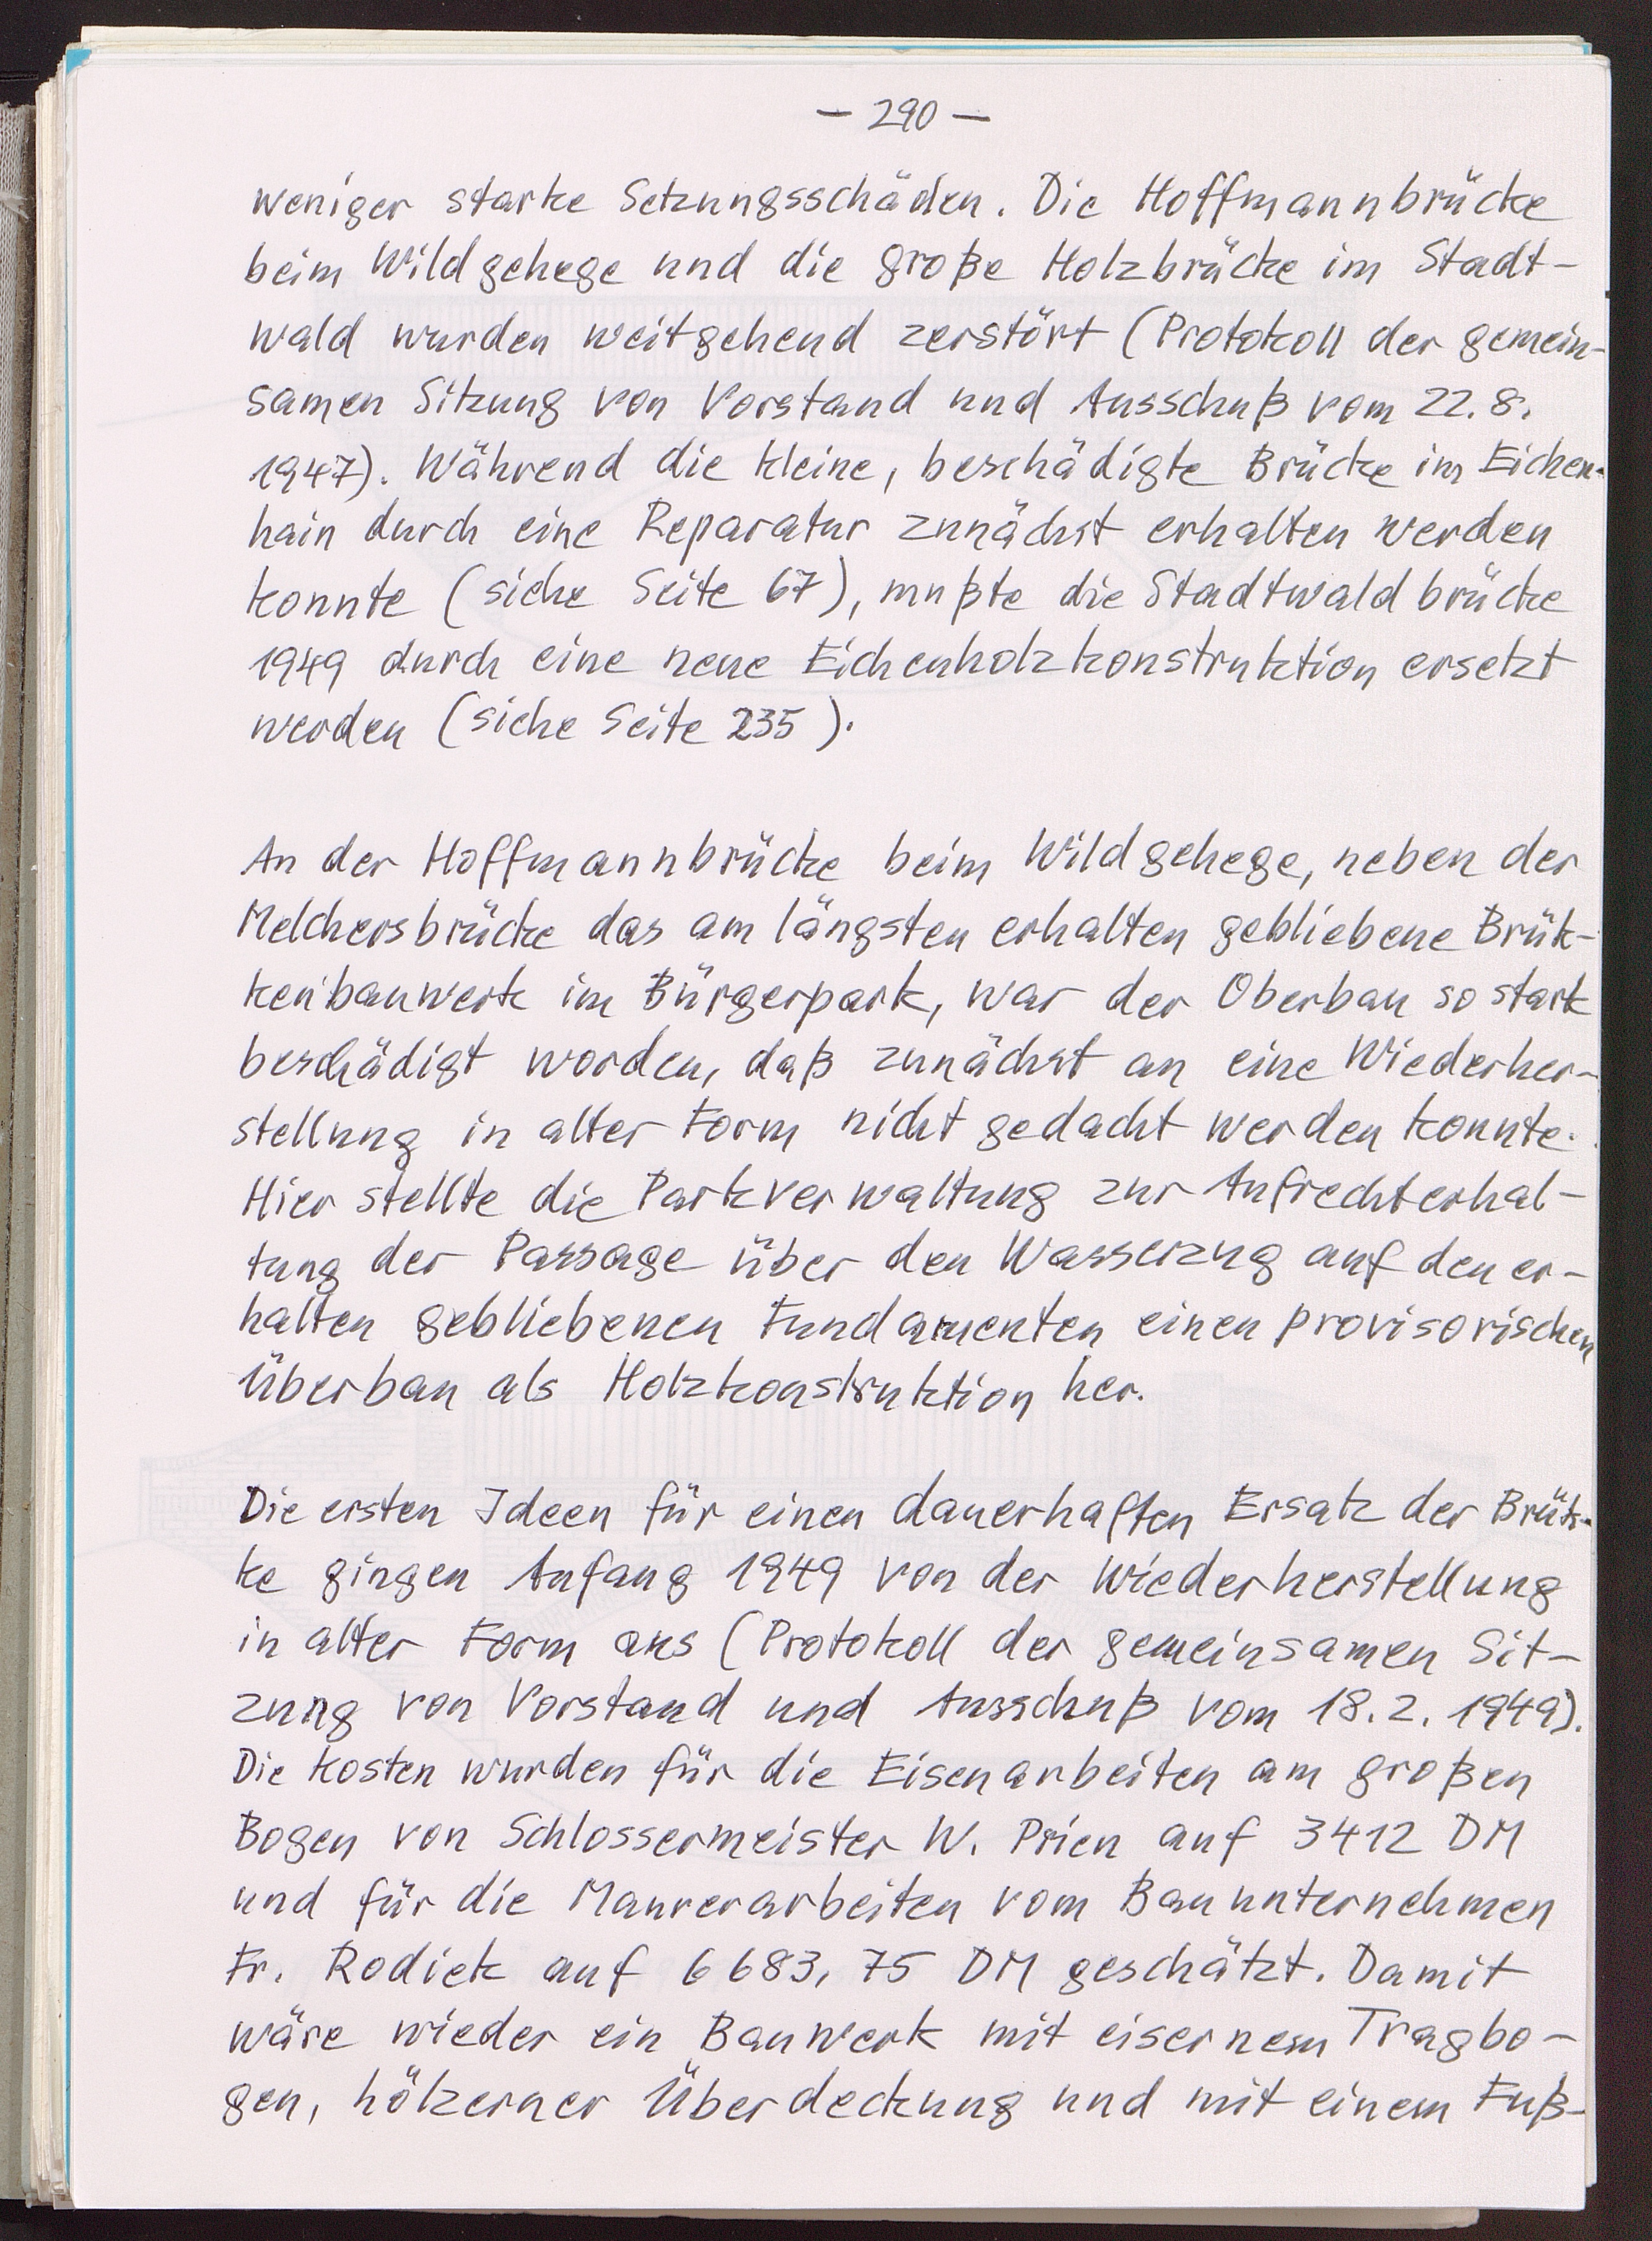 — 290 —
weniger starke Setzungsschäden. Die Hoffmannbrücke
beim Wildgehege und die große Holzbrücke im Stadt-
wald wurden weitgehend zerstört (Protokoll der gemein-
samen Sitzung von Vorstand und Ausschuß vom 22.8.
1947). Während die kleine, beschädigte Brücke im Eichen-
hain durch eine Reparatur zunächst erhalten werden
konnte (siehe Seite 67), mußte die Stadtwaldbrücke
1949 durch eine neue Eichenholzkonstruktion ersetzt
werden (siehe Seite 235).
An der Hoffmannbrücke beim Wildgehege, neben der
Melchersbrücke das am längsten erhalten gebliebene Brük-
kenbauwerk im Bürgerpark, war der Oberbau so stark
beschädigt worden, daß zunächst an eine Wiederher-
stellung in alter Form nicht gedacht werden konnte.
Hier stellte die Parkverwaltung zur Aufrechterhal-
tung der Passage über den Wasserzug auf den er-
halten gebliebenen Fundamenten einen provisorischen
Überbau als Holzkonstruktion her.
Die ersten Ideen für einen dauerhaften Ersatz der Brük-
ke gingen Anfang 1949 von der Wiederherstellung
in alter Form aus (Protokoll der gemeinsamen Sit-
zung von Vorstand und Ausschuß vom 18.2.1949).
Die Kosten wurden für die Eisenarbeiten am großen
Bogen von Schlossermeister W. Prien auf 3412 DM
und für die Maurerarbeiten vom Bauunternehmen
Fr. Rodiek auf 6683,75 DM geschätzt. Damit
wäre wieder ein Bauwerk mit eisernem Tragbo-
gen, hölzerner Überdeckung und mit einem Fuß-